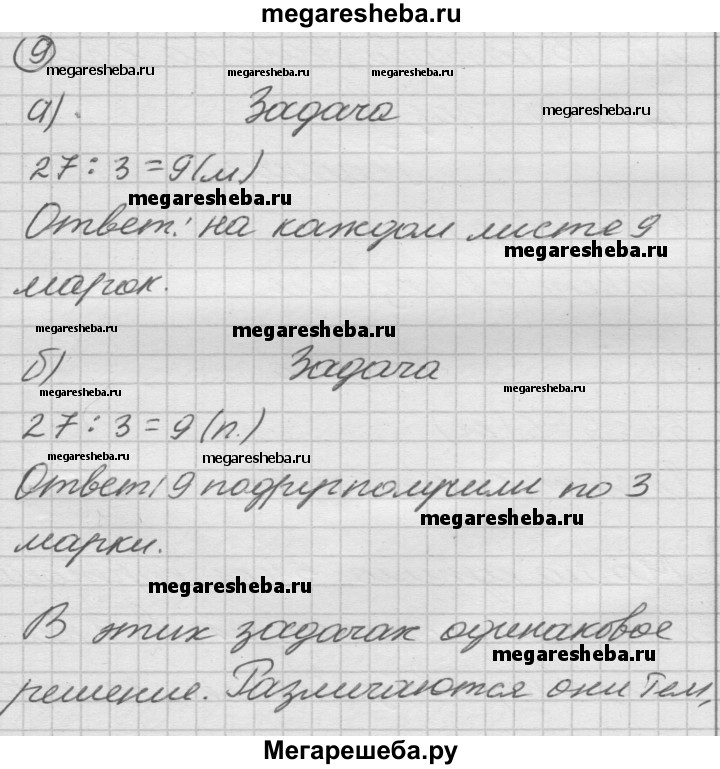 megaresheba.ru
9
megaresheba.ru megaresheba.ru megaresheba.ru
а). Задача megaresheba.ru
27 : 3 = 9 (м)
megaresheba.ru
Ответ: на каждом листе 9
megaresheba.ru
марок.
megaresheba.ru megaresheba.ru
б) Задача
megaresheba.ru megaresheba.ru
27 : 3 = 9 (п.)
megaresheba.ru megaresheba.ru
Ответ: 9 подруг получили по 3
megaresheba.ru
марки.
megaresheba.ru
В этих задачах одинаковое
megaresheba.ru
решение. Различаются они тем,
Мегарешеба.ру